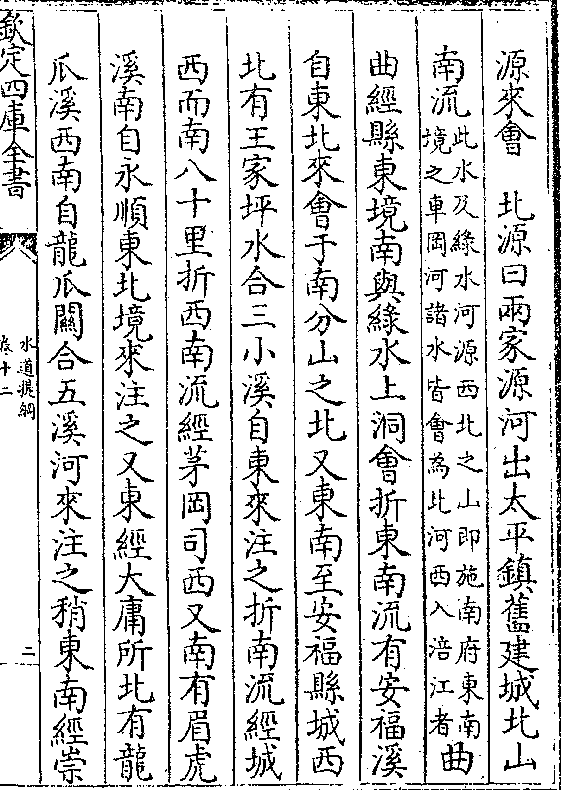 源來會　北源曰兩家源河出太平鎮舊建城北山
南流此水及綠水河源西北之山即施南府東南境之車岡河諸水皆會為此河西入涪江者曲
曲經縣東境南與綠水上洞會折東南流有安福溪
自東北來會于南分山之北又東南至安福縣城西
北有王家坪水合三小溪自東來注之折南流經城
西而南八十里折西南流經茅岡司西又南有眉虎
溪南自永順東北境來注之又東經大庸所北有龍
爪溪西南自龍爪關合五溪河來注之稍東南經崇
欽定四庫全書
水道提綱
卷十二
二